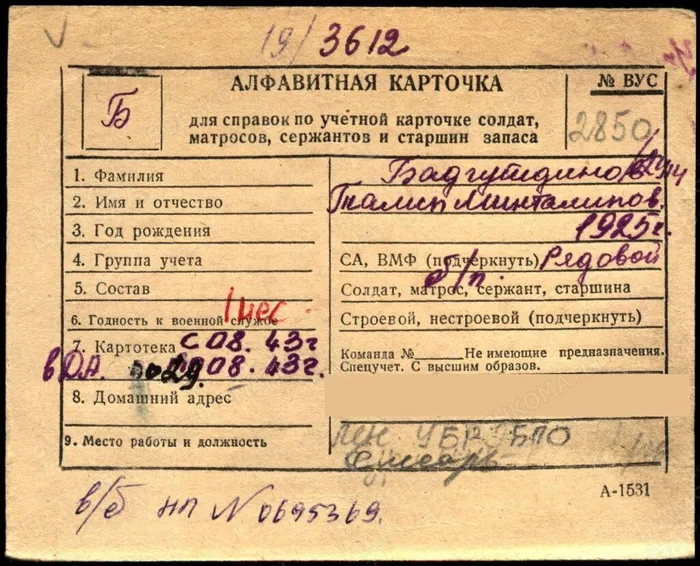 19/3612
АЛФАВИТНАЯ КАРТОЧКА
№ ВУС
Б
для справок по учётной карточке солдат,
матросов, сержантов и старшин запаса
2850
1. Фамилия
2. Имя и отчество
Талип Минталипов.
3. Год рождения
1925г.
4. Группа учета
СА, ВМФ (подчеркнуть) Рядовой
5. Состав
б/п.
Солдат, матрос, сержант, старшина
6. Годность к военной службе
Строевой, нестроевой (подчеркнуть)
7. Картотека С 08. 43г
Команда № Не имеющие предназначения.
Спецучет. С высшим образов.
29. 08. 43г.
8. Домашний адрес
9. Место работы и должность
УБР
слесарь
в/б нп N 0695369.
А-1531